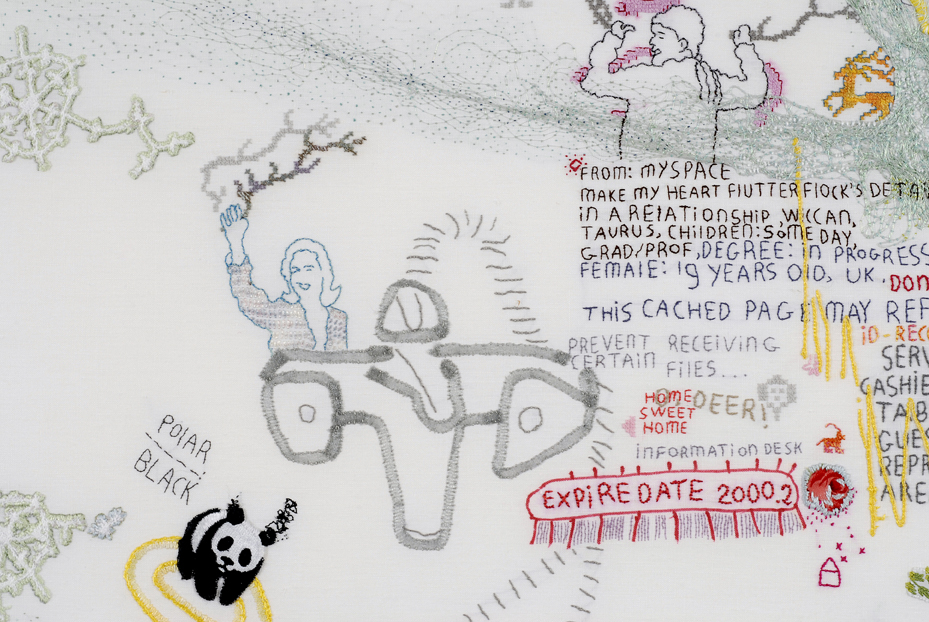 FROM: MYSPACE
MAKE MY HEART FlUTTER FlOCK'S DETA
iN A RElATiONSHIP, WiCCAN,
TAURUS, CHilDREN: SOME DAY,
GRAD/PROF, DEGREE: iN PROGRESS
FEMAlE: 19 YEARS OlD, UK. DON
THiS CACHED PAGE MAY REF
PREVENT RECEiViNG
CERTAIN FilES...
iD-REC
SERV
CASHiE
TAB
GUES
REPR
ARE
DEER!
HOME
SWEET
HOME
iNFORMATiON DESK
EXPiRE DATE 2000.2
POlAR
BlACK